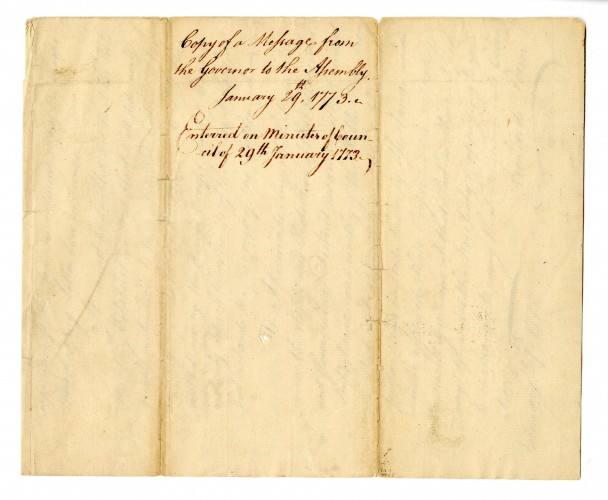 Copy of a Message from
the Governor to the Assembly.
January 29th. 1773.
Enterred on Minutes of Coun-
cil of 29th January 1773.